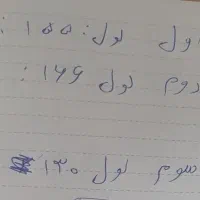 ول لول: ۱۵۵ :
دوم لول ۱۴۶ :
سوم لول ۱۳۰